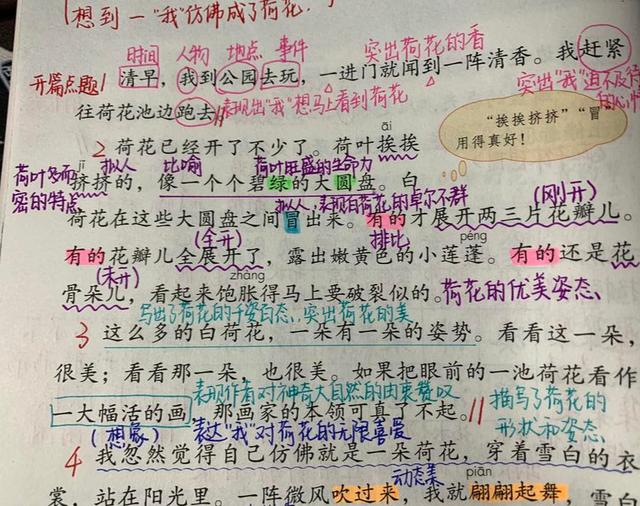 想到一"我"仿佛成了荷花.
时间 人物 地点 事件 突出荷花的香
开篇点题 清早，我到公园去玩，一进门就闻到一阵清香。我赶紧
突出"我"迫不及待
往荷花池边跑去 表现出"我"想马上看到荷花
"挨挨挤挤""冒"
用得真好！
āi
2 荷花已经开了不少了。荷叶挨挨
荷叶多而密的特点 拟人 比喻 荷叶旺盛的生命力
jǐ
挤挤的，像一个个碧绿的大圆盘。白
拟人，表现白荷花的卓尔不群 (刚开)
荷花在这些大圆盘之间冒出来。有的才展开两三片花瓣儿。
(全开) 排比 péng
有的花瓣儿全展开了，露出嫩黄色的小莲蓬。有的还是花
(未开) zhàng
骨朵儿，看起来饱胀得马上要破裂似的。荷花的优美姿态、
写出了荷花的千姿百态，突出荷花的美
3 这么多的白荷花，一朵有一朵的姿势。看看这一朵，
很美；看看那一朵，也很美。如果把眼前的一池荷花看作
表现作者对神奇大自然的由衷赞叹
一大幅活的画，那画家的本领可真了不起。 描写了荷花的形状和姿态、
(想象) 表达"我"对荷花的无限喜爱
4 我忽然觉得自己仿佛就是一朵荷花，穿着雪白的衣
动态美 piān
裳，站在阳光里。一阵微风吹过来，我就翩翩起舞，雪白